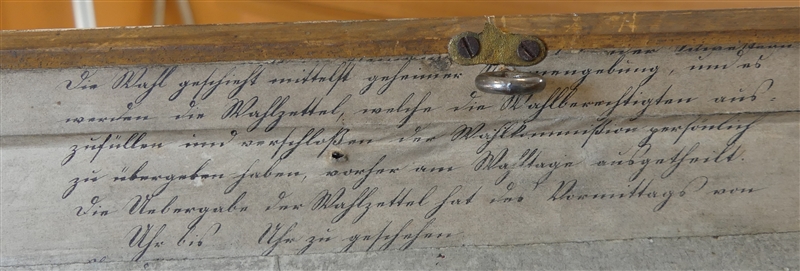 Die Wahl geschieht mittelst geheimer engebung, und es
werden die Wahlzettel, welche die Wahlberechtigten aus-
zufüllen und verschloßen der Wahlkommißion persönlich
zu übergeben haben, vorher am Wahltage ausgetheilt.
Die Uebergabe der Wahlzettel hat des Vormittags von
Uhr bis Uhr zu geschehen